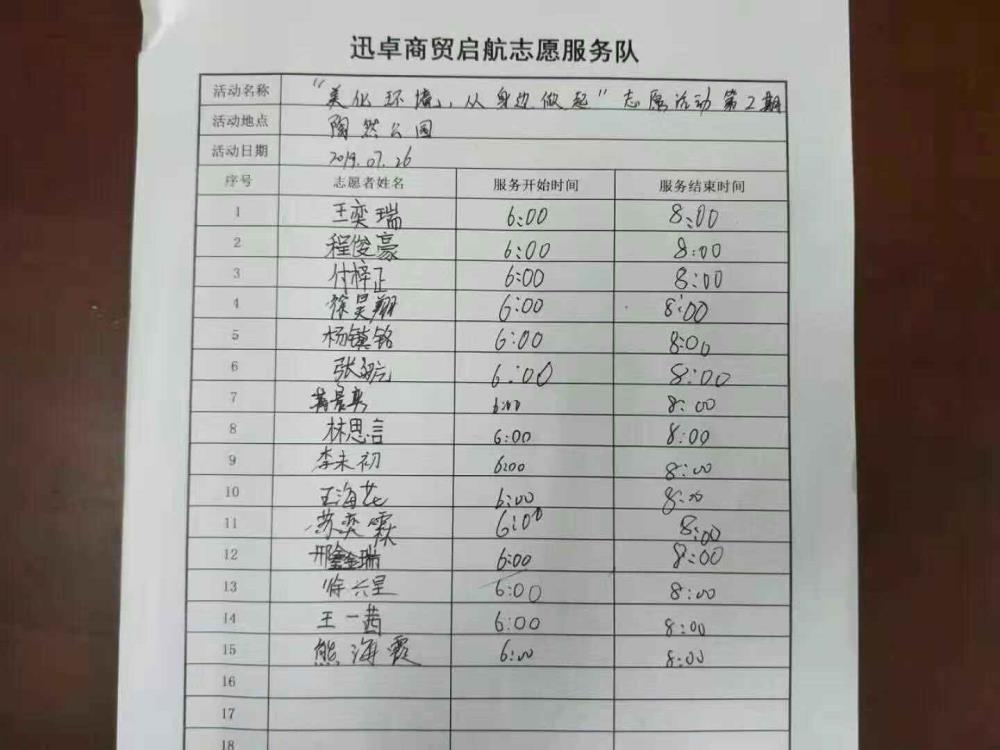 迅卓商贸启航志愿服务队
活动名称 "美化环境,从身边做起"志愿活动第2期
活动地点 陶然公园
活动日期 2019.07.26
序号 志愿者姓名 服务开始时间 服务结束时间
1 王奕瑞 6:00 8:00
2 程俊豪 6:00 8:00
3 付梓正 6:00 8:00
4 徐昊翔 6:00 8:00
5 杨镇铭 6:00 8:00
6 张 6:00 8:00
7 6:00 8:00
8 林思言 6:00 8:00
9 李未初 6:00 8:00
10 王海花 6:00 8:00
11 苏奕霖 6:00 8:00
12 邢鑫瑞 6:00 8:00
13 徐六星 6:00 8:00
14 王一茜 6:00 8:00
15 熊海霞 6:00 8:00
16
17
18